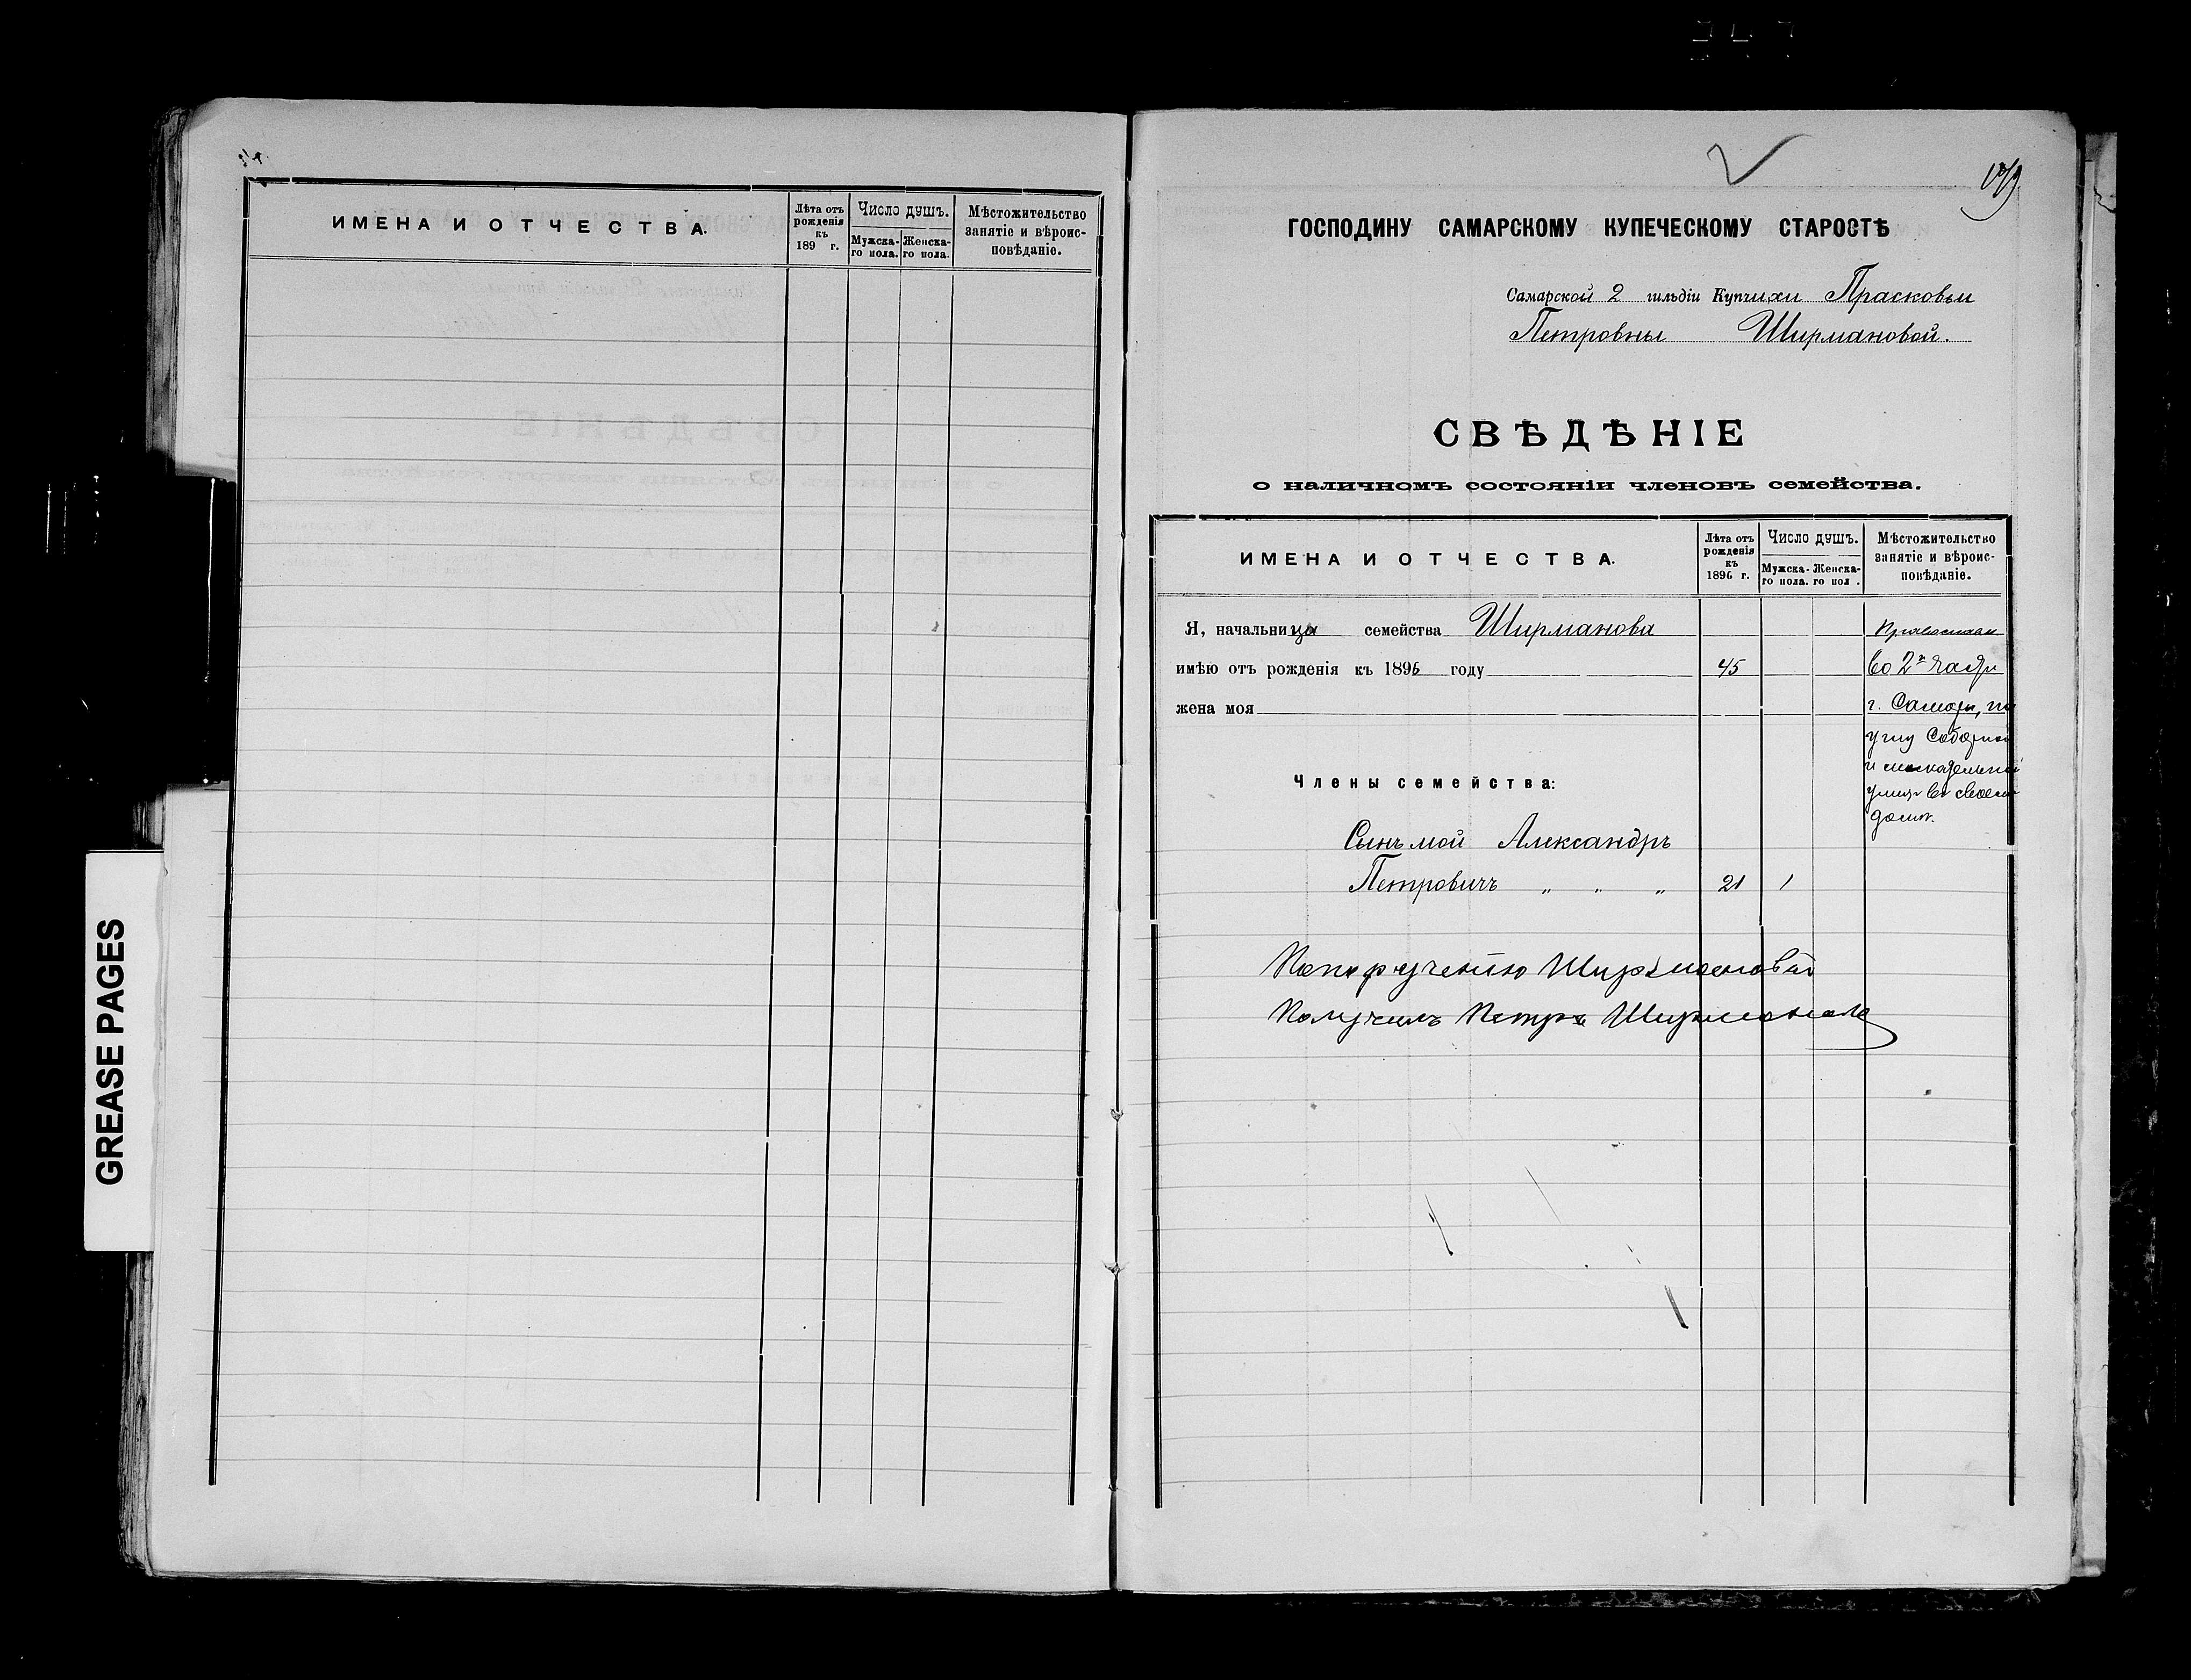 GREASE PAGES
ИМЕНА И ОТЧЕСТВА.
Лѣта отъ рожденія къ 189 г.
Число душъ.
Мужска-го пола.
Женска-го пола.
Мѣстожительство занятіе и вѣроис-повѣданіе.
ГОСПОДИНУ САМАРСКОМУ КУПЕЧЕСКОМУ СТАРОСТѢ
Самарской 2 гильдіи Купчихи Прасковьи
Петровны Ширмановой.
СВѢДѢНІЕ
о наличномъ состояніи членовъ семейства.
ИМЕНА И ОТЧЕСТВА.
Лѣта отъ рожденія къ 1896 г.
Число душъ.
Мужска-го пола.
Женска-го пол .
Мѣстожительство занятіе и вѣроис-повѣданіе.
Я, начальница семейства Ширманова
имѣю отъ рожденія къ 1896 году 45
жена моя
во 2й части
г. Самары, по
углу Соборной
и
улицъ въ своемъ
домѣ.
Члены семейства:
Сынъ мой Александръ
Петровичъ „ „ „ 21 1
По порученію Ширмановой
Получилъ Петръ Ширмановъ